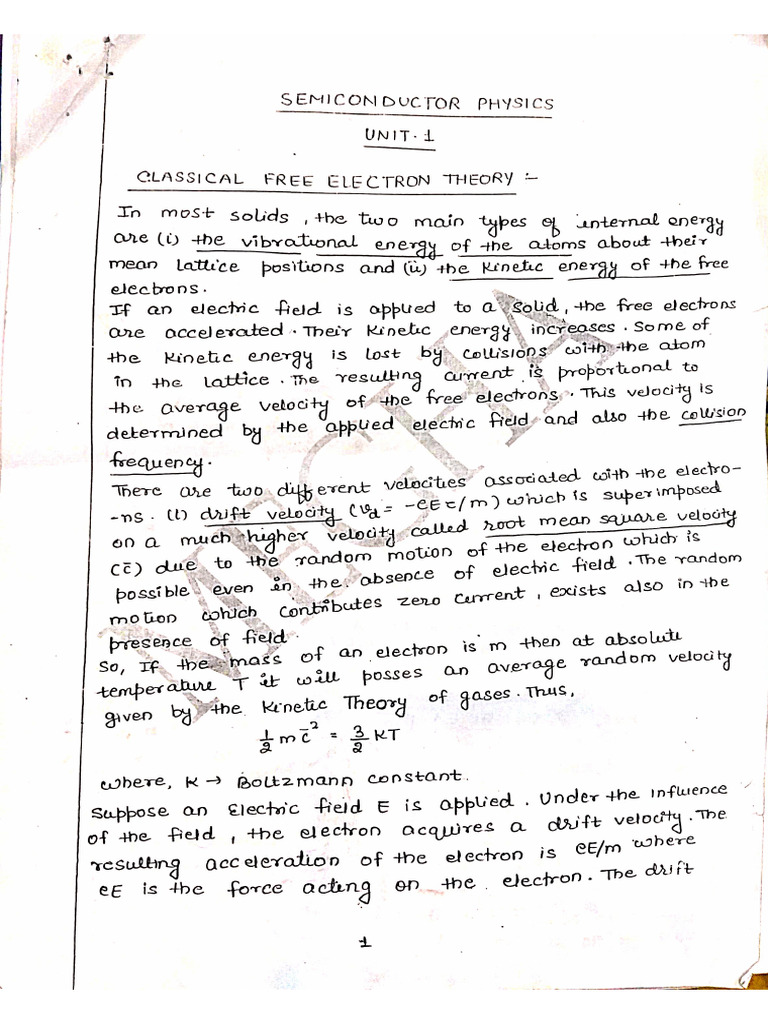 SEMICONDUCTOR PHYSICS
UNIT-1
CLASSICAL FREE ELECTRON THEORY :-
In most solids, the two main types of internal energy
are (i) the vibrational energy of the atoms about their
mean lattice positions and (ii) the kinetic energy of the free
electrons.
If an electric field is applied to a solid, the free electrons
are accelerated. Their kinetic energy increases. Some of
the kinetic energy is lost by collisions with the atom
in the lattice. The resulting current is proportional to
the average velocity of the free electrons. This velocity is
determined by the applied electric field and also the collision
frequency.
There are two different velocities associated with the electro-
-ns. (1) drift velocity (Vd = -eEτ/m) which is superimposed
on a much higher velocity called root mean square velocity
(c̄) due to the random motion of the electron which is
possible even in the absence of electric field. The random
motion which contributes zero current, exists also in the
presence of field.
So, If the mass of an electron is m then at absolute
temperature T it will posses an average random velocity
given by the Kinetic Theory of gases. Thus,
1/2 m c̄² = 3/2 KT
where, K → Boltzmann constant.
Suppose an Electric field E is applied. Under the influence
of the field, the electron acquires a drift velocity. The
resulting acceleration of the electron is eE/m where
eE is the force acting on the electron. The drift
1
MEGHA